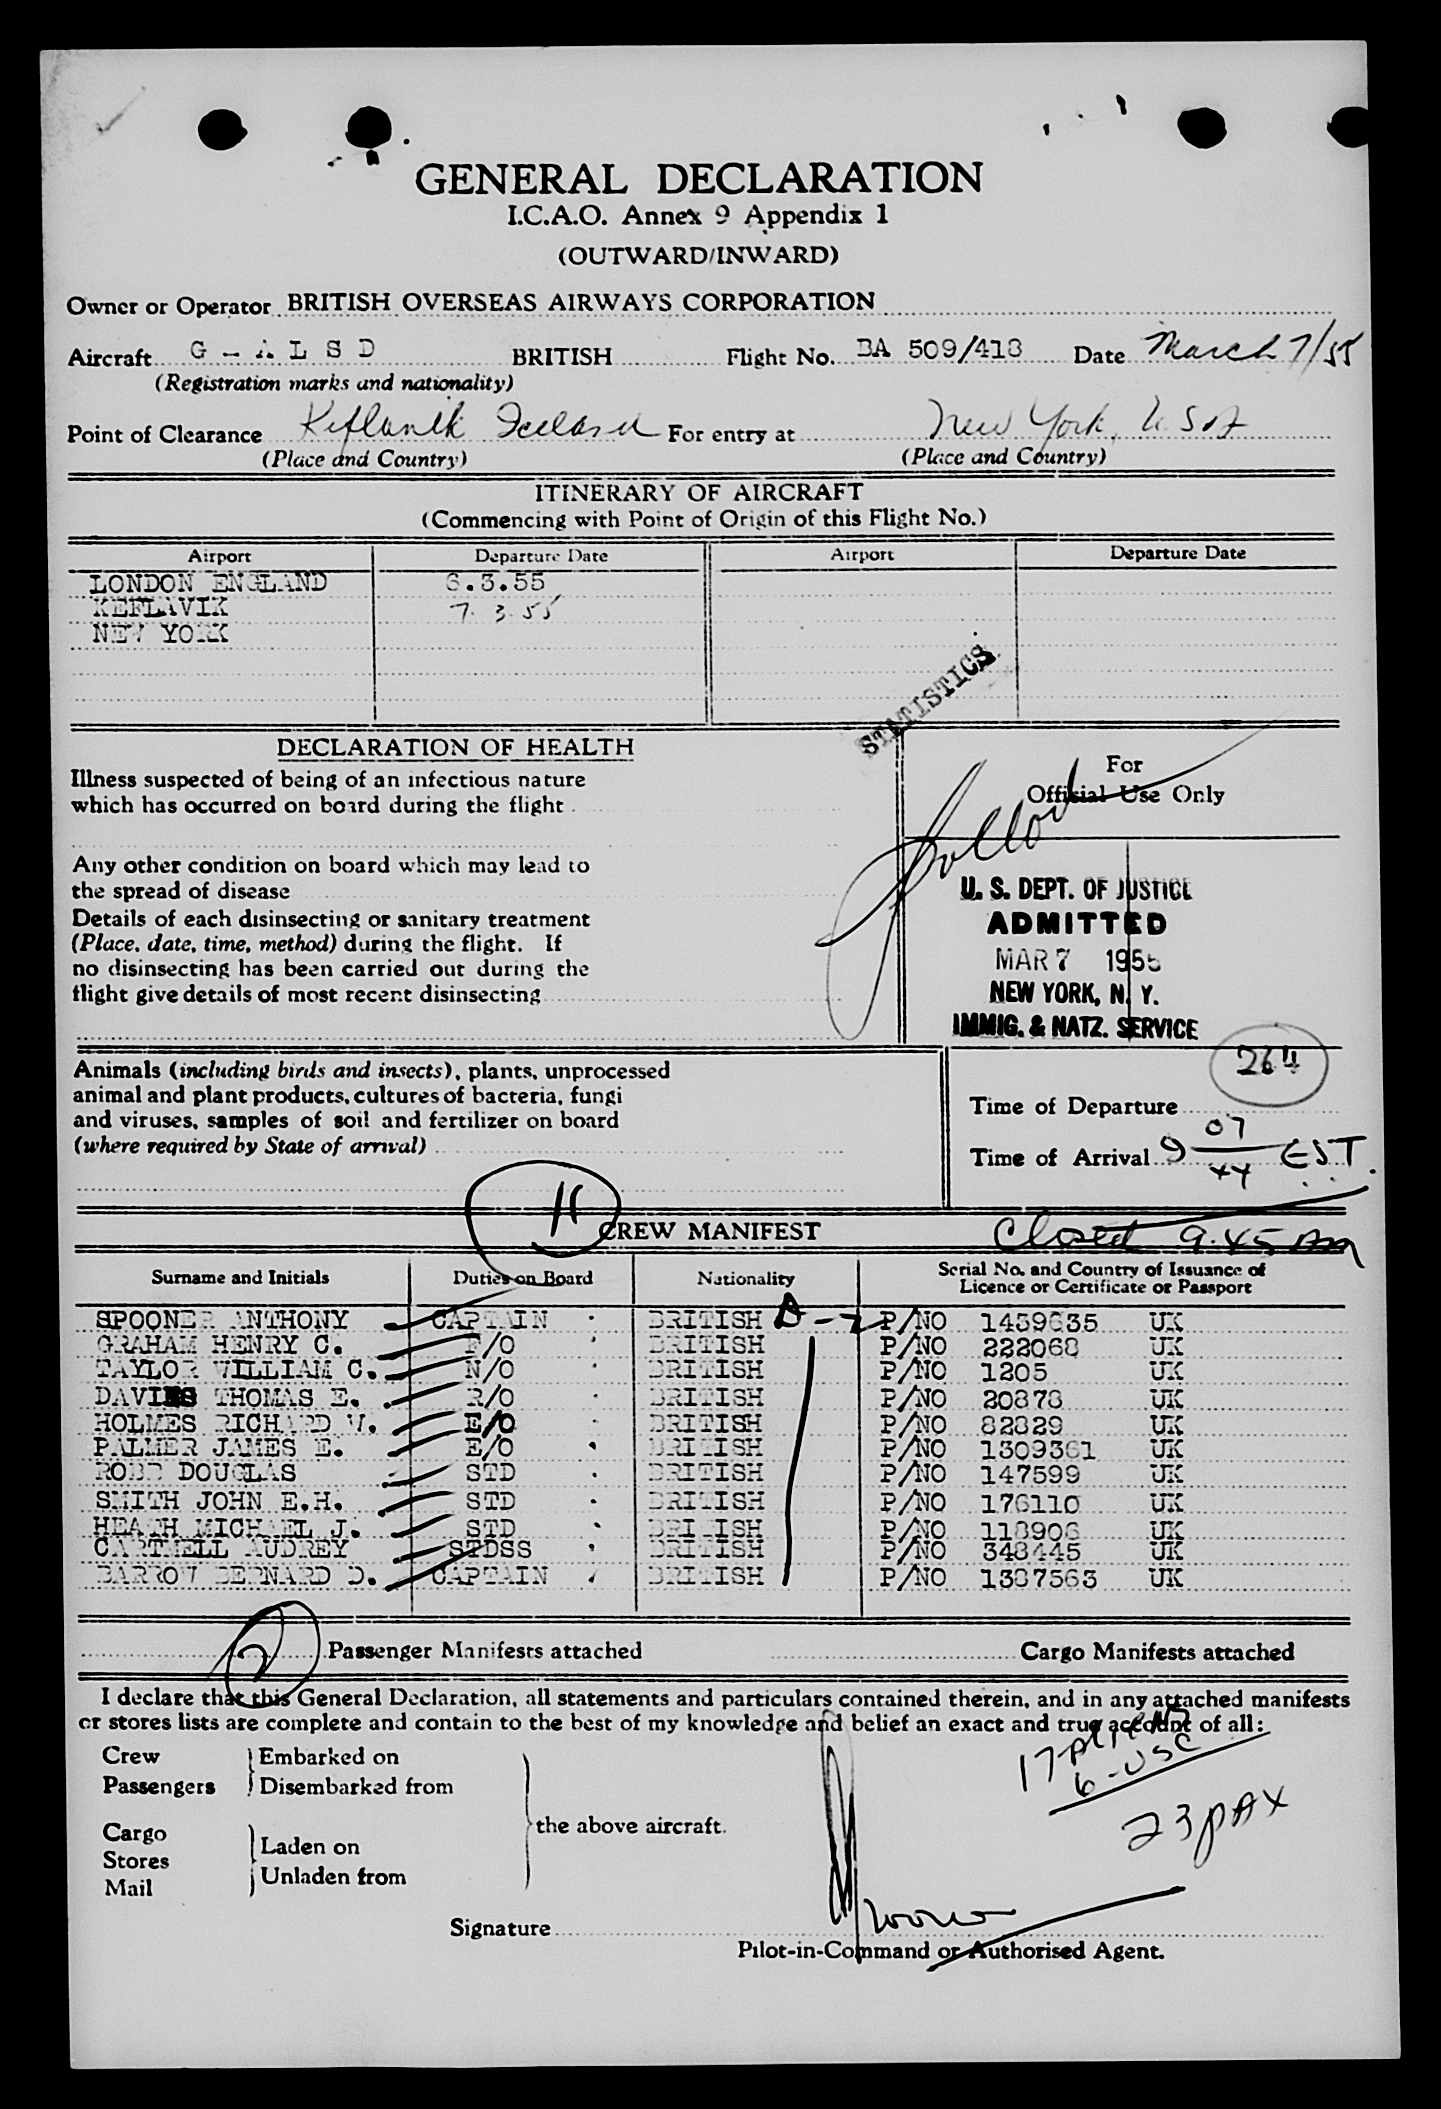 GENERAL DECLARATION
I.C.A.O. Annex 9 Appendix 1
(OUTWARD/INWARD)
Owner or Operator BRITISH OVERSEAS AIRWAYS CORPORATION
Aircraft G - A L S D BRITISH Flight No. BA 509/418 Date March 7/55
(Registration marks and nationality)
Point of Clearance Keflavik Iceland For entry at New York, U S A
(Place and Country) (Place and Country)
ITINERARY OF AIRCRAFT
(Commencing with Point of Origin of this Flight No.)
Airport Departure Date Airport Departure Date
LONDON ENGLAND 6.3.55
KEFLAVIK 7.3.55
NEW YORK
STATISTICS
DECLARATION OF HEALTH
For
Official Use Only
Illness suspected of being of an infectious nature
which has occurred on board during the flight
Any other condition on board which may lead to
the spread of disease
Details of each disinsecting or sanitary treatment
(Place, date, time, method) during the flight. If
no disinsecting has been carried out during the
flight give details of most recent disinsecting
U. S. DEPT. OF JUSTICE
ADMITTED
MAR 7 1955
NEW YORK, N. Y.
IMMIG. & NATZ. SERVICE
264
Animals (including birds and insects), plants, unprocessed
animal and plant products, cultures of bacteria, fungi
and viruses, samples of soil and fertilizer on board
(where required by State of arrival)
Time of Departure
Time of Arrival 9 07 44 EST.
11
CREW MANIFEST
Closed 9.45 am
Surname and Initials Duties on Board Nationality Serial No. and Country of Issuance of
Licence or Certificate or Passport
SPOONER ANTHONY CAPTAIN BRITISH D-2 P/NO 1459635 UK
GRAHAM HENRY C. F/O BRITISH P/NO 222068 UK
TAYLOR WILLIAM C. N/O BRITISH P/NO 1205 UK
DAVIES THOMAS E. R/O BRITISH P/NO 20878 UK
HOLMES RICHARD W. E/O BRITISH P/NO 82829 UK
PALMER JAMES E. E/O BRITISH P/NO 1309361 UK
ROBB DOUGLAS STD BRITISH P/NO 147599 UK
SMITH JOHN E.H. STD BRITISH P/NO 176110 UK
HEATH MICHAEL J. STD BRITISH P/NO 118906 UK
CARTMELL AUDREY STDSS BRITISH P/NO 348445 UK
BARROW BERNARD D. CAPTAIN BRITISH P/NO 1387563 UK
2 Passenger Manifests attached Cargo Manifests attached
I declare that this General Declaration, all statements and particulars contained therein, and in any attached manifests
or stores lists are complete and contain to the best of my knowledge and belief an exact and true account of all:
17-aliens
6-USC
23 pax
Crew Embarked on
Passengers Disembarked from
the above aircraft.
Cargo
Stores Laden on
Mail Unladen from
Signature
Pilot-in-Command or Authorised Agent.